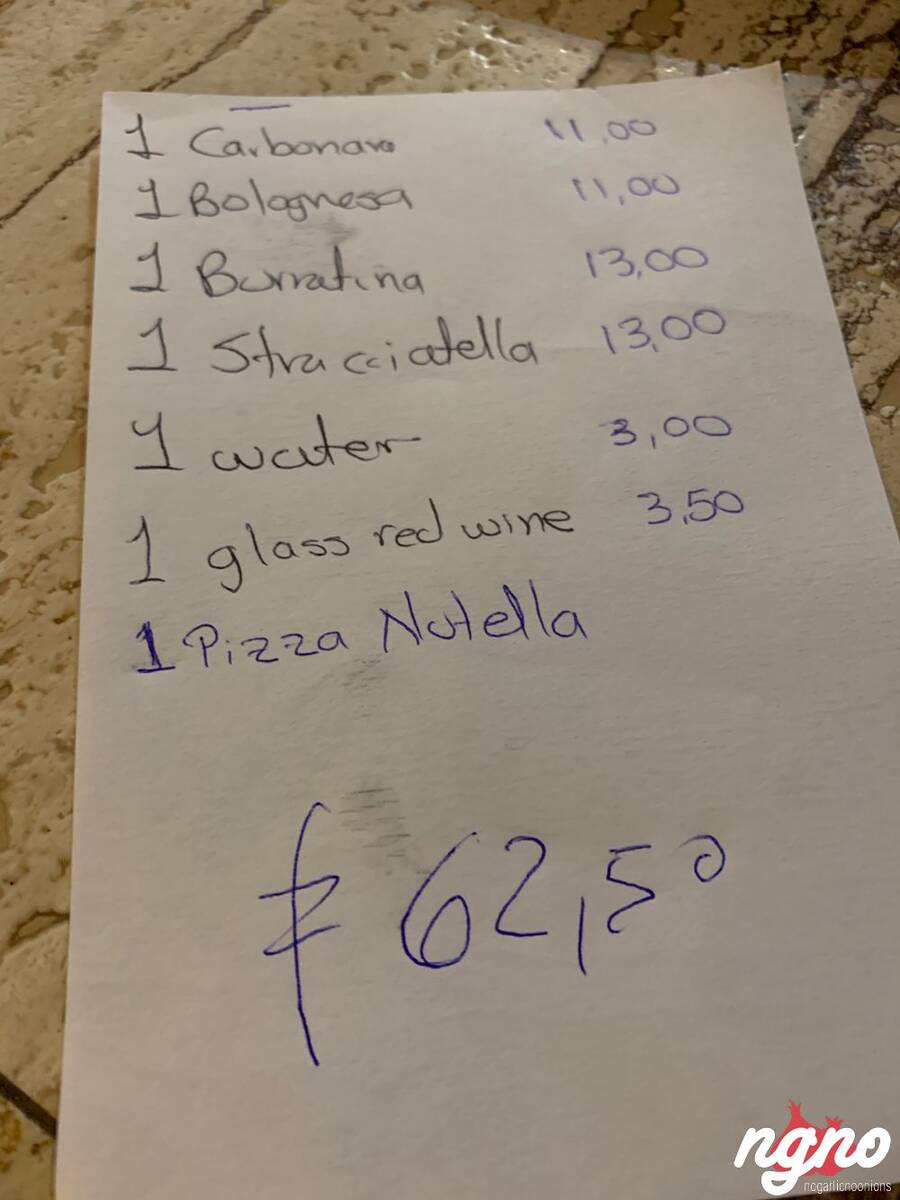 1 Carbonara 11,00
1 Bolognesa 11,00
1 Burratina 13,00
1 Stracciatella 13,00
1 water 3,00
1 glass red wine 3,50
1 Pizza Nutella
62,50
ngno
nogarlicnoonions